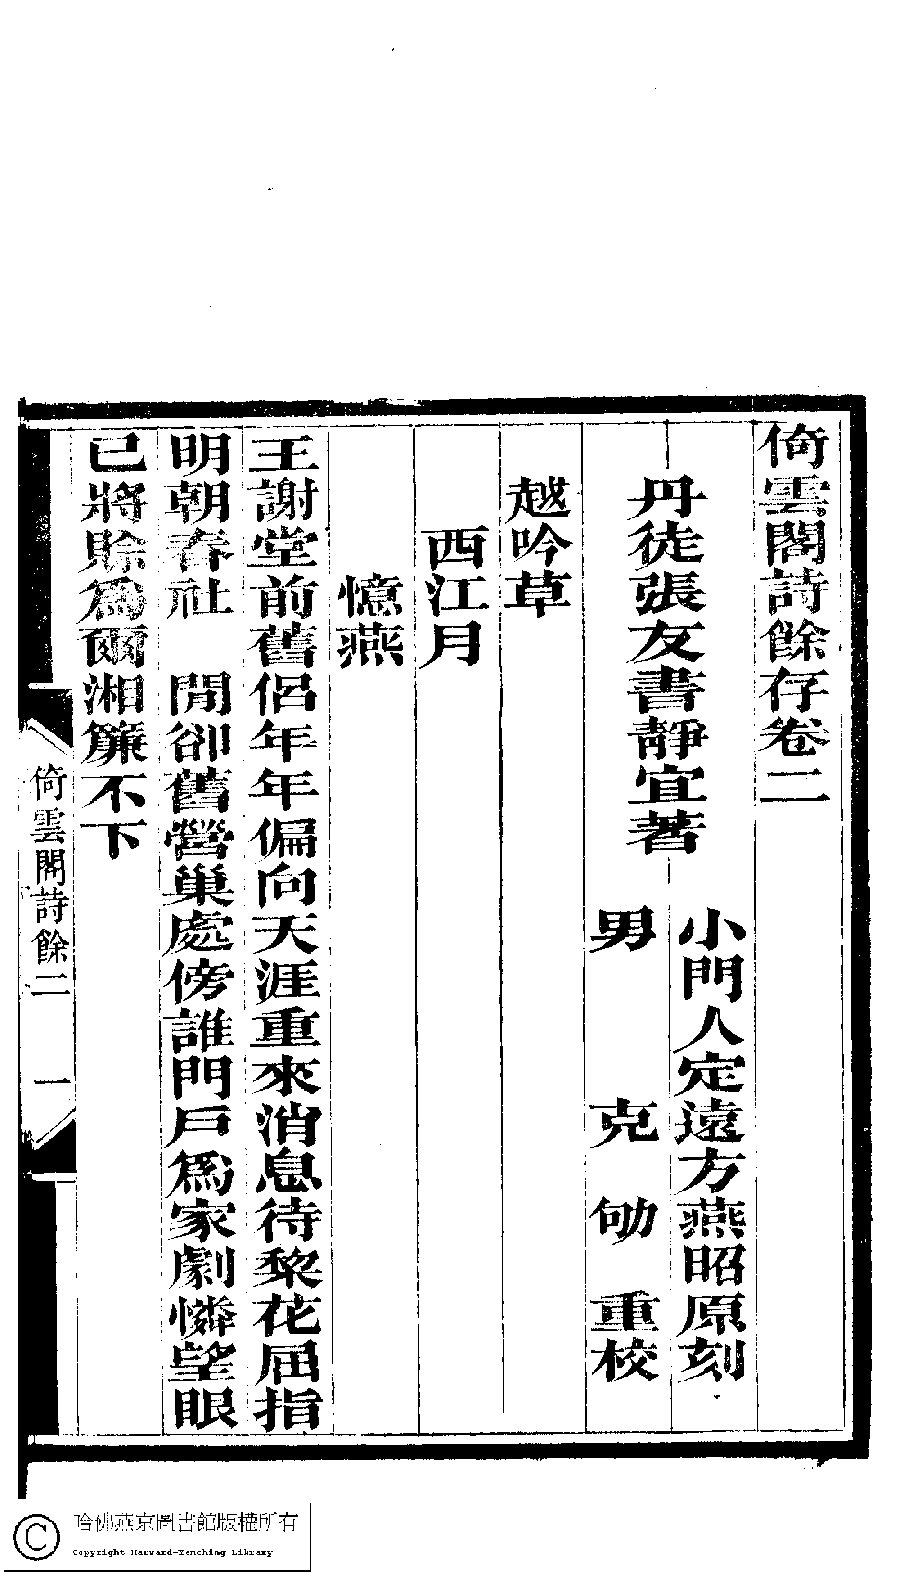 倚雲閣詩餘存卷二
丹徒張友書靜宜著
小門人定遠方燕昭原刻
男　克劬重校
越吟草
西江月
憶燕
王謝堂前舊侶年年偏向天涯重來消息待棃花屈指
明朝春社　閒卻舊營巢處傍誰門戶爲家劇憐望眼
已將賖爲爾湘簾不下
倚雲閣詩餘二
一
哈佛燕京圖書館版權所有
Copyright Harvard-Yenching Library